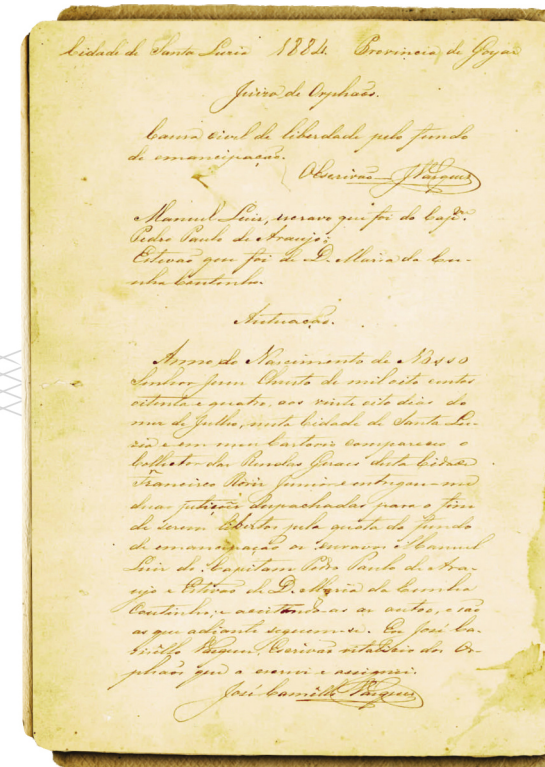 Cidade de Santa Luzia 1884. Provincia de Goyaz
Juizo de Orphãos.
Causa civel de liberdade pelo fundo
de emancipação.
O Escrivão J Vargues
Manuel Luis, escravo que foi do Capm.
Pedro Paulo de Araujo;
Estevão que foi de D. Maria da Cu-
nha Coutinho.
Autuação.
Anno do Nascimento de Nosso
Senhor Jesus Christo de mil oito centos
oitenta e quatro, aos vinte oito dias do
mez de Julho, nesta Cidade de Santa Lu-
zia e em meu Cartorio compareceo o
Collector das Rendas Geraes desta Cidade
Francisco Junior e entregou-me
duas petições despachadas para o fim
de serem libertos pela quota do fundo
de emancipação os escravos Manuel
Luis do Capitam Pedro Paulo de Arau-
jo e Estevão de D. Maria da Cunha
Coutinho; e as as autoo, e são
as que adiante seguem-se. Eu José Ca-
millo Escrivão vitalicio dos Or-
phãos que o escrevi e assignei.
José Camillo